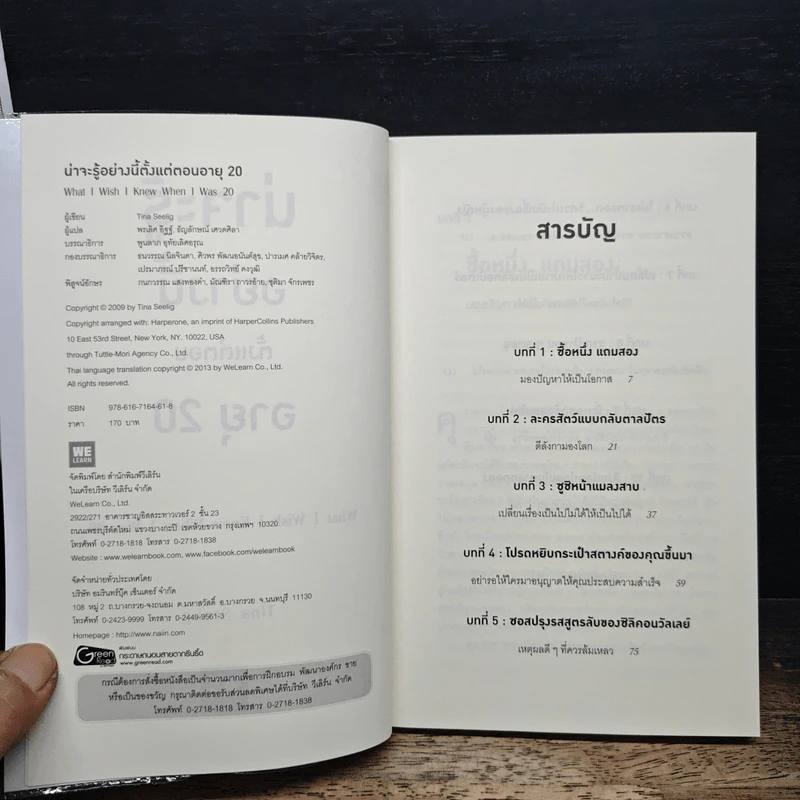 น่าจะรู้อย่างนี้ตั้งแต่ตอนอายุ 20
What I Wish I Knew When I Was 20
ผู้เขียน Tina Seelig
ผู้แปล พรเลิศ อิฐฐ์, ธัญลักษณ์ เศวตศิลา
บรรณาธิการ พูนลาภ อุทัยเลิศอรุณ
กองบรรณาธิการ ธนวรรณ นิลจินดา, ศิวพร พัฒนอนันต์สุข, ปารเมศ คล้ายวิจิตร,
เปรมาภรณ์ ปรีชานนท์, อรรถวิทย์ คงวุฒิ
พิสูจน์อักษร กนกวรรณ แสงทองคำ, มัณฑิรา ถาวรอ้าย, ชุติมา จักรเพชร
Copyright © 2009 by Tina Seelig
Copyright arranged with: Harperone, an imprint of HarperCollins Publishers
10 East 53rd Street, New York, NY. 10022, USA
through Tuttle-Mori Agency Co., Ltd.
Thai language translation copyright © 2013 by WeLearn Co., Ltd.
All rights reserved.
ISBN 978-616-7164-61-8
ราคา 170 บาท
WE
LEARN
จัดพิมพ์โดย สำนักพิมพ์วีเลิร์น
ในเครือบริษัท วีเลิร์น จำกัด
WeLearn Co., Ltd.
2922/271 อาคารชาญอิสสระทาวเวอร์ 2 ชั้น 23
ถนนเพชรบุรีตัดใหม่ แขวงบางกะปิ เขตห้วยขวาง กรุงเทพฯ 10320
โทรศัพท์ 0-2718-1818 โทรสาร 0-2718-1838
Website : www.welearnbook.com, www.facebook.com/welearnbook
จัดจำหน่ายทั่วประเทศโดย
บริษัท อมรินทร์บุ๊ค เซ็นเตอร์ จำกัด
108 หมู่ 2 ถ.บางกรวย-จงถนอม ต.มหาสวัสดิ์ อ.บางกรวย จ.นนทบุรี 11130
โทรศัพท์ 0-2423-9999 โทรสาร 0-2449-9561-3
Homepage : http://www.naiin.com
Green Read
พิมพ์บน
กระดาษถนอมสายตากรีนรี้ด
www.greenread.com
กรณีต้องการสั่งซื้อหนังสือเป็นจำนวนมากเพื่อการฝึกอบรม พัฒนาองค์กร ขาย
หรือเป็นของขวัญ กรุณาติดต่อขอรับส่วนลดพิเศษได้ที่บริษัท วีเลิร์น จำกัด
โทรศัพท์ 0-2718-1818 โทรสาร 0-2718-1838
สารบัญ
บทที่ 1 : ซื้อหนึ่ง แถมสอง
มองปัญหาให้เป็นโอกาส 7
บทที่ 2 : ละครสัตว์แบบกลับตาลปัตร
ตีลังกามองโลก 21
บทที่ 3 : ซูชิหน้าแมลงสาบ
เปลี่ยนเรื่องเป็นไปไม่ได้ให้เป็นไปได้ 37
บทที่ 4 : โปรดหยิบกระเป๋าสตางค์ของคุณขึ้นมา
อย่ารอให้ใครมาอนุญาตให้คุณประสบความสำเร็จ 59
บทที่ 5 : ซอสปรุงรสสูตรลับของซิลิคอนวัลเลย์
เหตุผลดี ๆ ที่ควรล้มเหลว 75